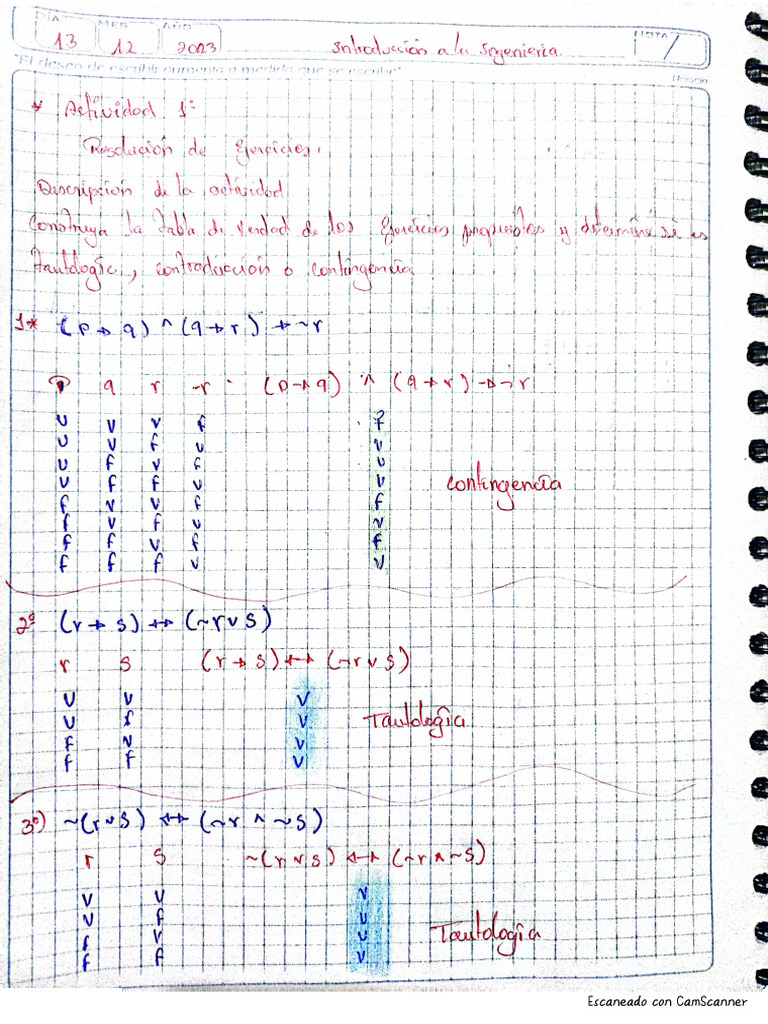 DIA MES AÑO NOTA
13 12 2023 Introducción a la Ingenieria
"El deseo de escribir aumenta a medida que se escribe"
* Actividad 1:
Resolución de Ejercicios.
Descripción de la actividad
Construya la tabla de verdad de los Ejercicios propuestos y determine si es
tautologic, contradicción o contingencia
1* (p → q) ^ (q → r) → ~r
p q r ¬r (p → q) ^ (q → r) → ¬r
V V V f f
V V f V V
V f V f V
V f f V V
f V V f f
f V f V V
f f V f f
f f f V V
contingencia
2º (r → s) ↔ (~r v s)
r s (r → s) ↔ (¬r v s)
V V V
V f V
f V V
f f V
Tautología
3º) ~(r v s) ↔ (~r ^ ~s)
r s ~(r v s) ↔ (~r ^ ~s)
V V V
V f V
f V V
f f V
Tautología
Escaneado con CamScanner